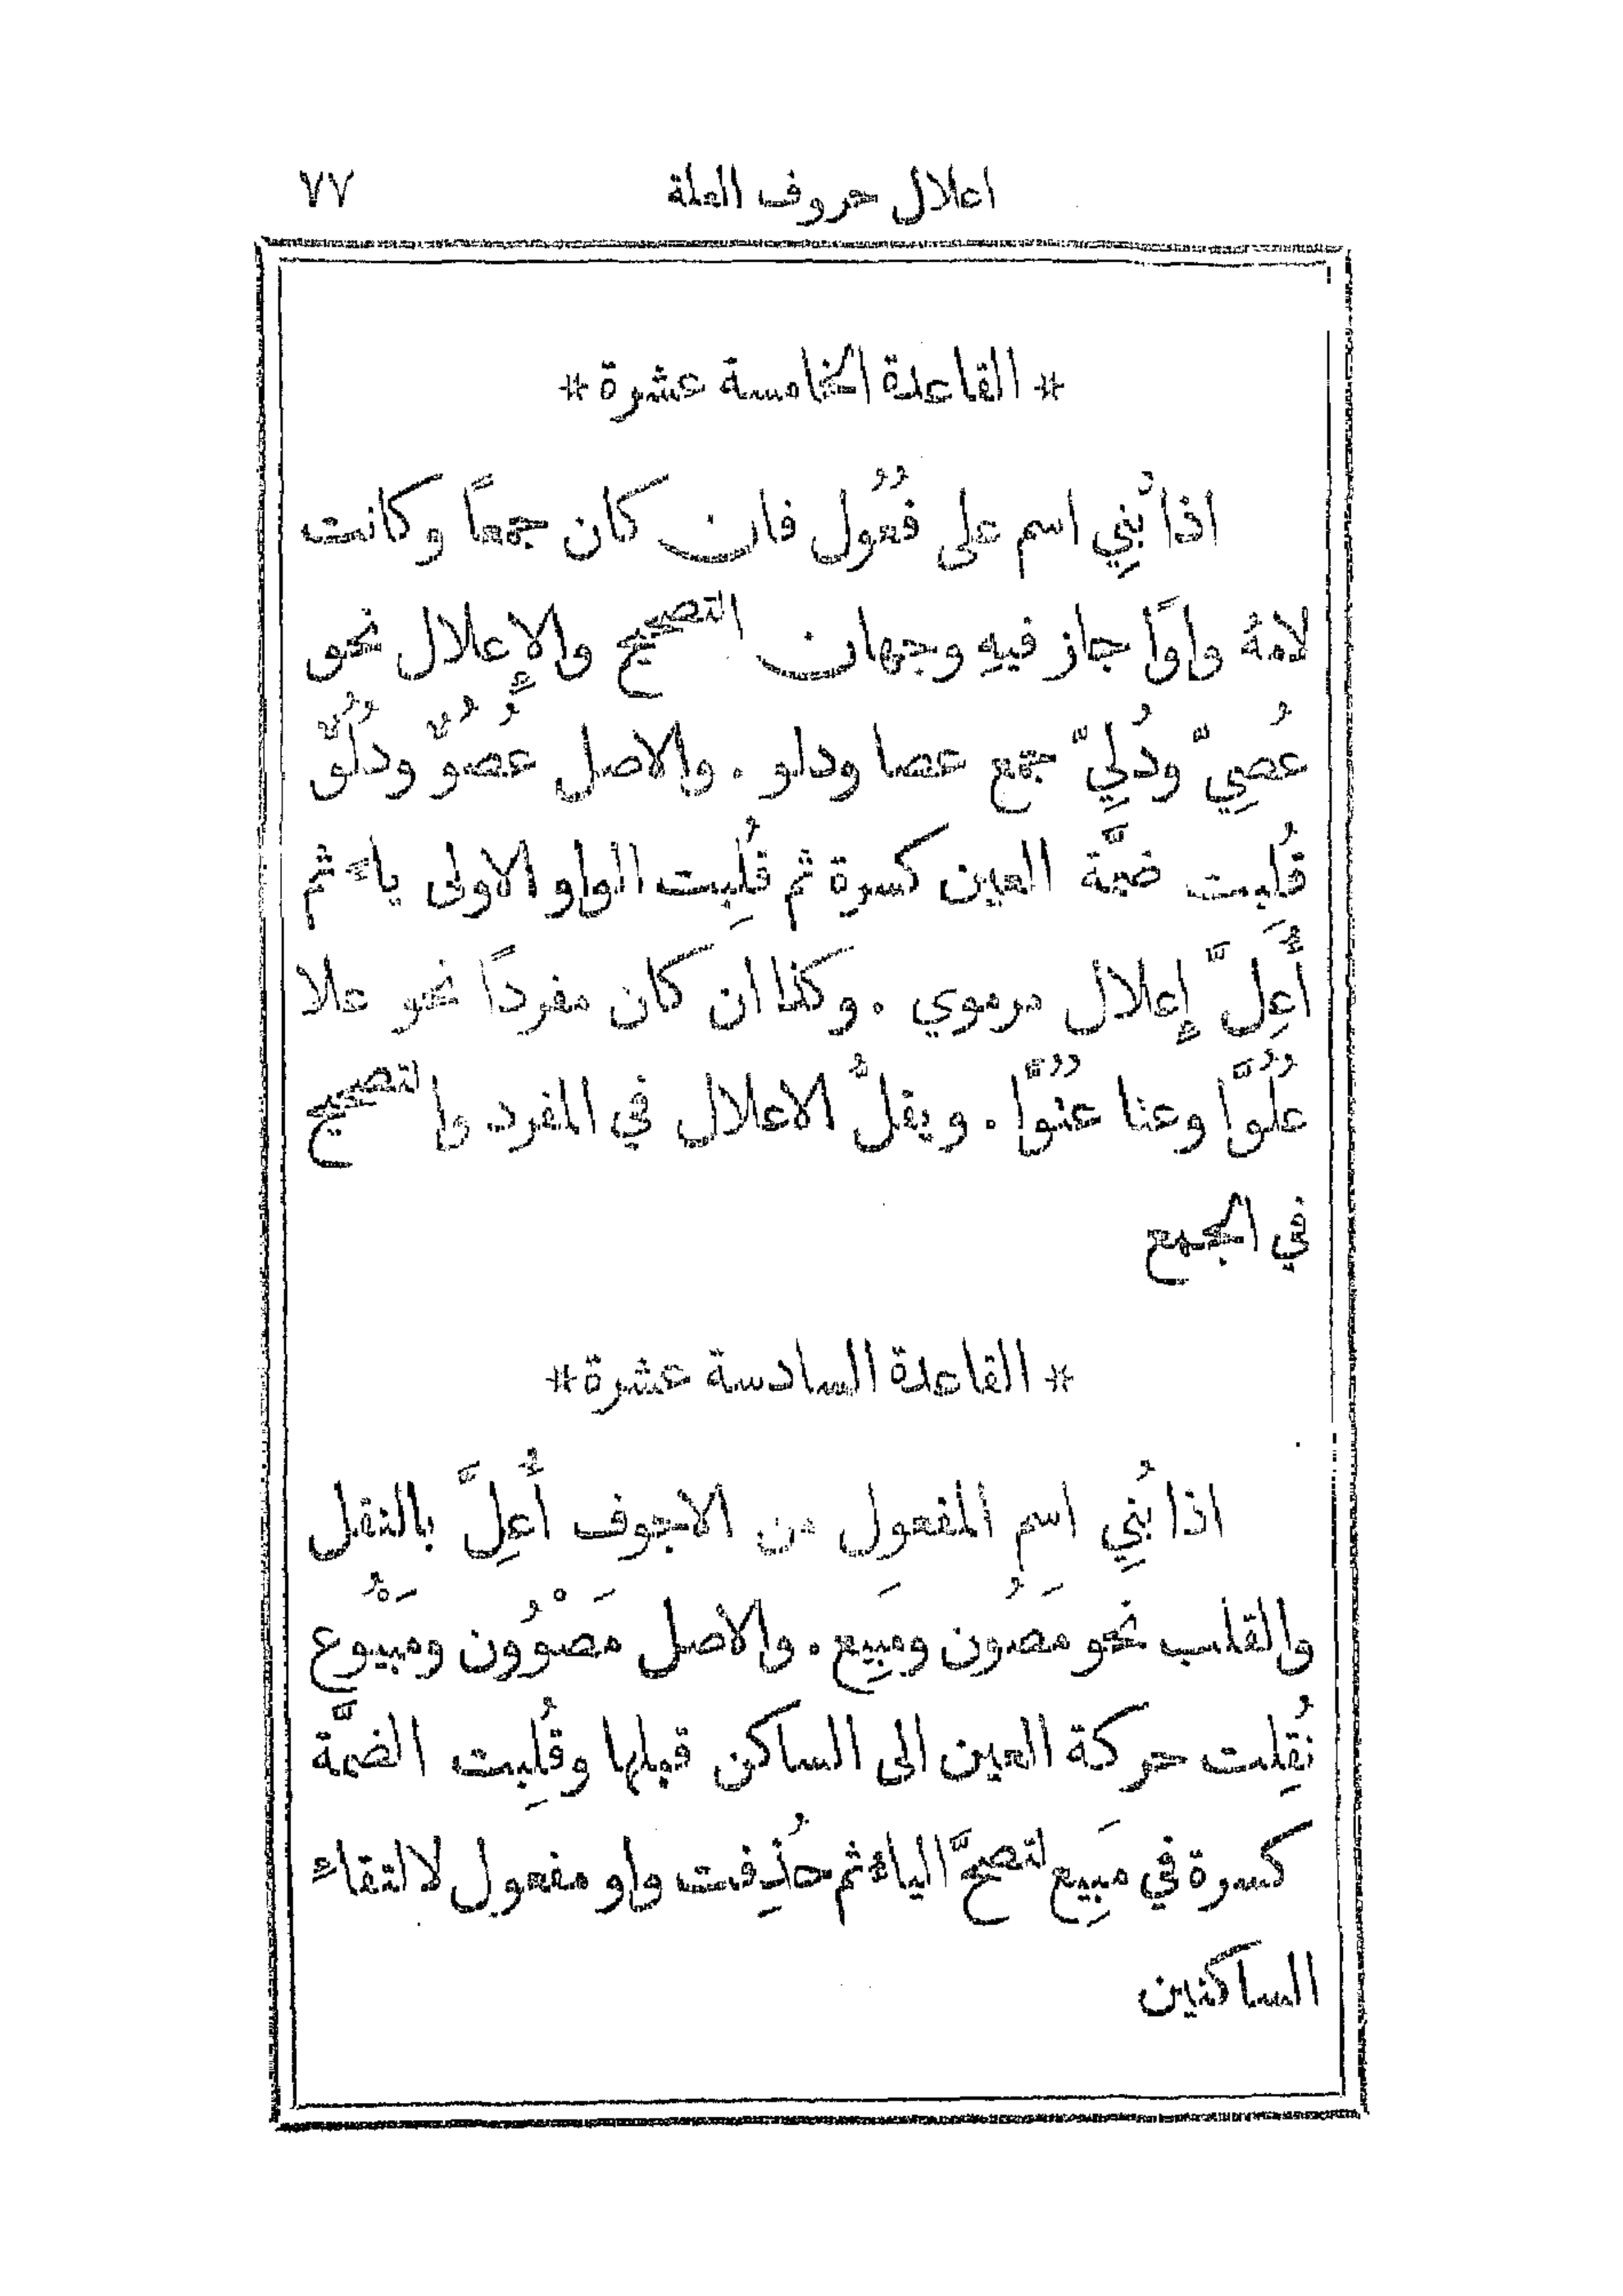 اعلال حروف العلة ٧٧
* القاعدة الخامسة عشرة *
اذا بُنِي اسم على فُعُول فان كان جمعًا وكانت
لامهُ واوًا جاز فيهِ وجهان التصحيح والإِعلال نحو
عُصِيّ ودُلِيّ جمع عصا ودلو. والاصل عُصُوٌّ ودُلُوٌّ
قُلِبت ضمَّة العين كسرة ثم قُلِبت الواو الاولى ياءً ثم
أُعِلَّ إِعلال مرموي. وكذا ان كان مفردًا نحو علا
عُلُوًّا وعتا عُتُوًّا. ويقلُّ الاعلال في المفرد والتصحيح
في الجمع
* القاعدة السادسة عشرة *
اذا بُنِي اسم المفعول من الاجوف أُعِلَّ بالنقل
والقلب نحو مَصُون ومَبِيع. والاصل مَصْوُون ومَبْيُوع
نُقِلت حركة العين الى الساكن قبلها وقُلِبت الضمَّة
كسرة في مَبِيع لتصحَّ الياءُ ثم حُذِفت واو مفعول لالتقاءِ
الساكنين